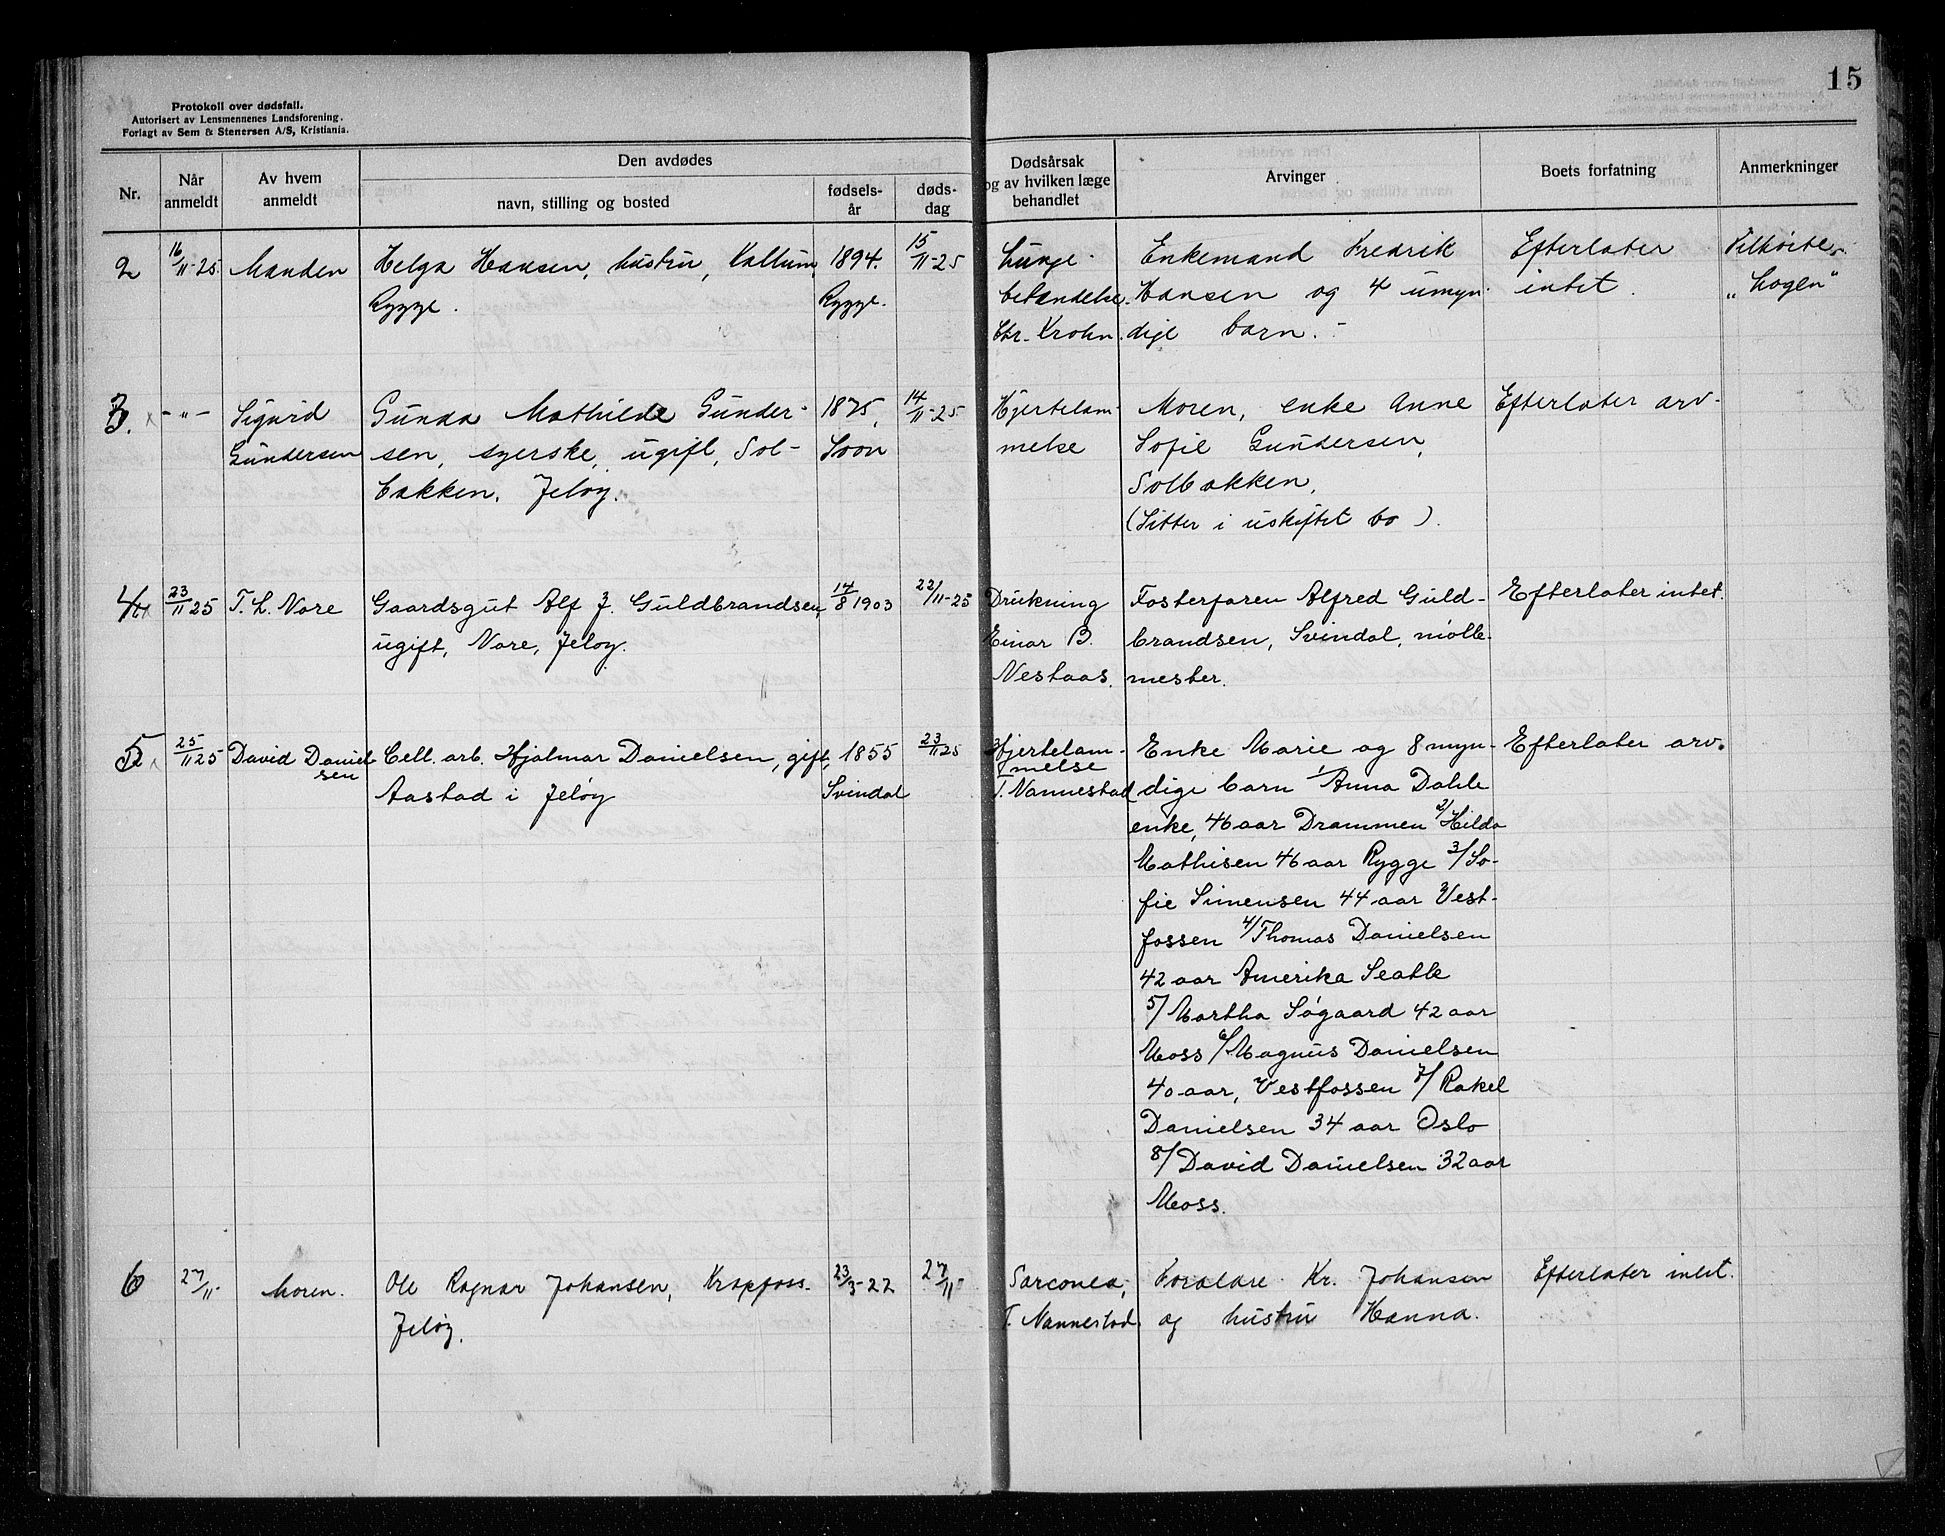 15
Protokoll over dødsfall.
Autorisert av Lensmennenes Landsforening.
Forlagt av Sem & Stenersen A/S, Kristiania.
Nr.
Når anmeldt
Av hvem anmeldt
Den avdødes
navn, stilling og bosted
fødsels-år
døds-dag
Dødsårsak
og av hvilken læge
behandlet
Arvinger
Boets forfatning
Anmerkninger
2
16/11-25
Manden
Helga Hansen, hustru, Kallum,
Rygge.
1894.
Rygge.
15/11-25
Lunge-
betændelse.
Chr. Krohn.
Enkemand Fredrik
Hansen og 4 umyn-
dige barn. -
Efterlater
intet.
Tilhørte
"Logen"
3.
- " -
Sigurd
Gundersen
Gunda Mathilde Gunder-
sen, syerske, ugift, Sol-
bakken, Jeløy.
1875,
Soon
14/11-25
Hjertelam-
melse
Moren, enke Anne
Sofie Gundersen,
Solbakken,
(Sitter i uskiftet bo).
Efterlater arv.
4
23/11 25
T. L. Nore
Gaardsgut Alf J. Guldbrandsen,
ugift, Nore, Jeløy.
14/8 1903
22/11-25
Drukning
Einar B.
Nestaas.
Fosterfaren Alfred Guld-
brandsen, Svindal, mølle-
mester.
Efterlater intet.
5
25/11 25
David Daniel-
sen
Cell. arb. Hjalmar Danielsen, gift,
Aastad i Jeløy
1855
Svindal
23/11 25
Hjertelam-
melse
T. Nannestad
Enke Marie og 8 myn-
dige barn 1/ Anna Dahle
enke, 46 aar Drammen 2/ Hilda
Mathisen 46 aar Rygge 3/ So-
fie Simensen 44 aar Vest-
fossen 4/ Thomas Danielsen
42 aar Amerika Seatle
5/ Martha Søgaard 42 aar
Moss 6/ Magnus Danielsen
40 aar, Vestfossen 7/ Rakel
Danielsen 34 aar Oslo
8/ David Danielsen 32 aar
Moss.
Efterlater arv.
6
27/11-
Moren.
Ole Ragnar Johansen, Krapfoss.
Jeløy.
23/3-22
27/11-
T. Nannestad.
Forældre Kr. Johansen
og hustru Hanna.
Efterlater intet.